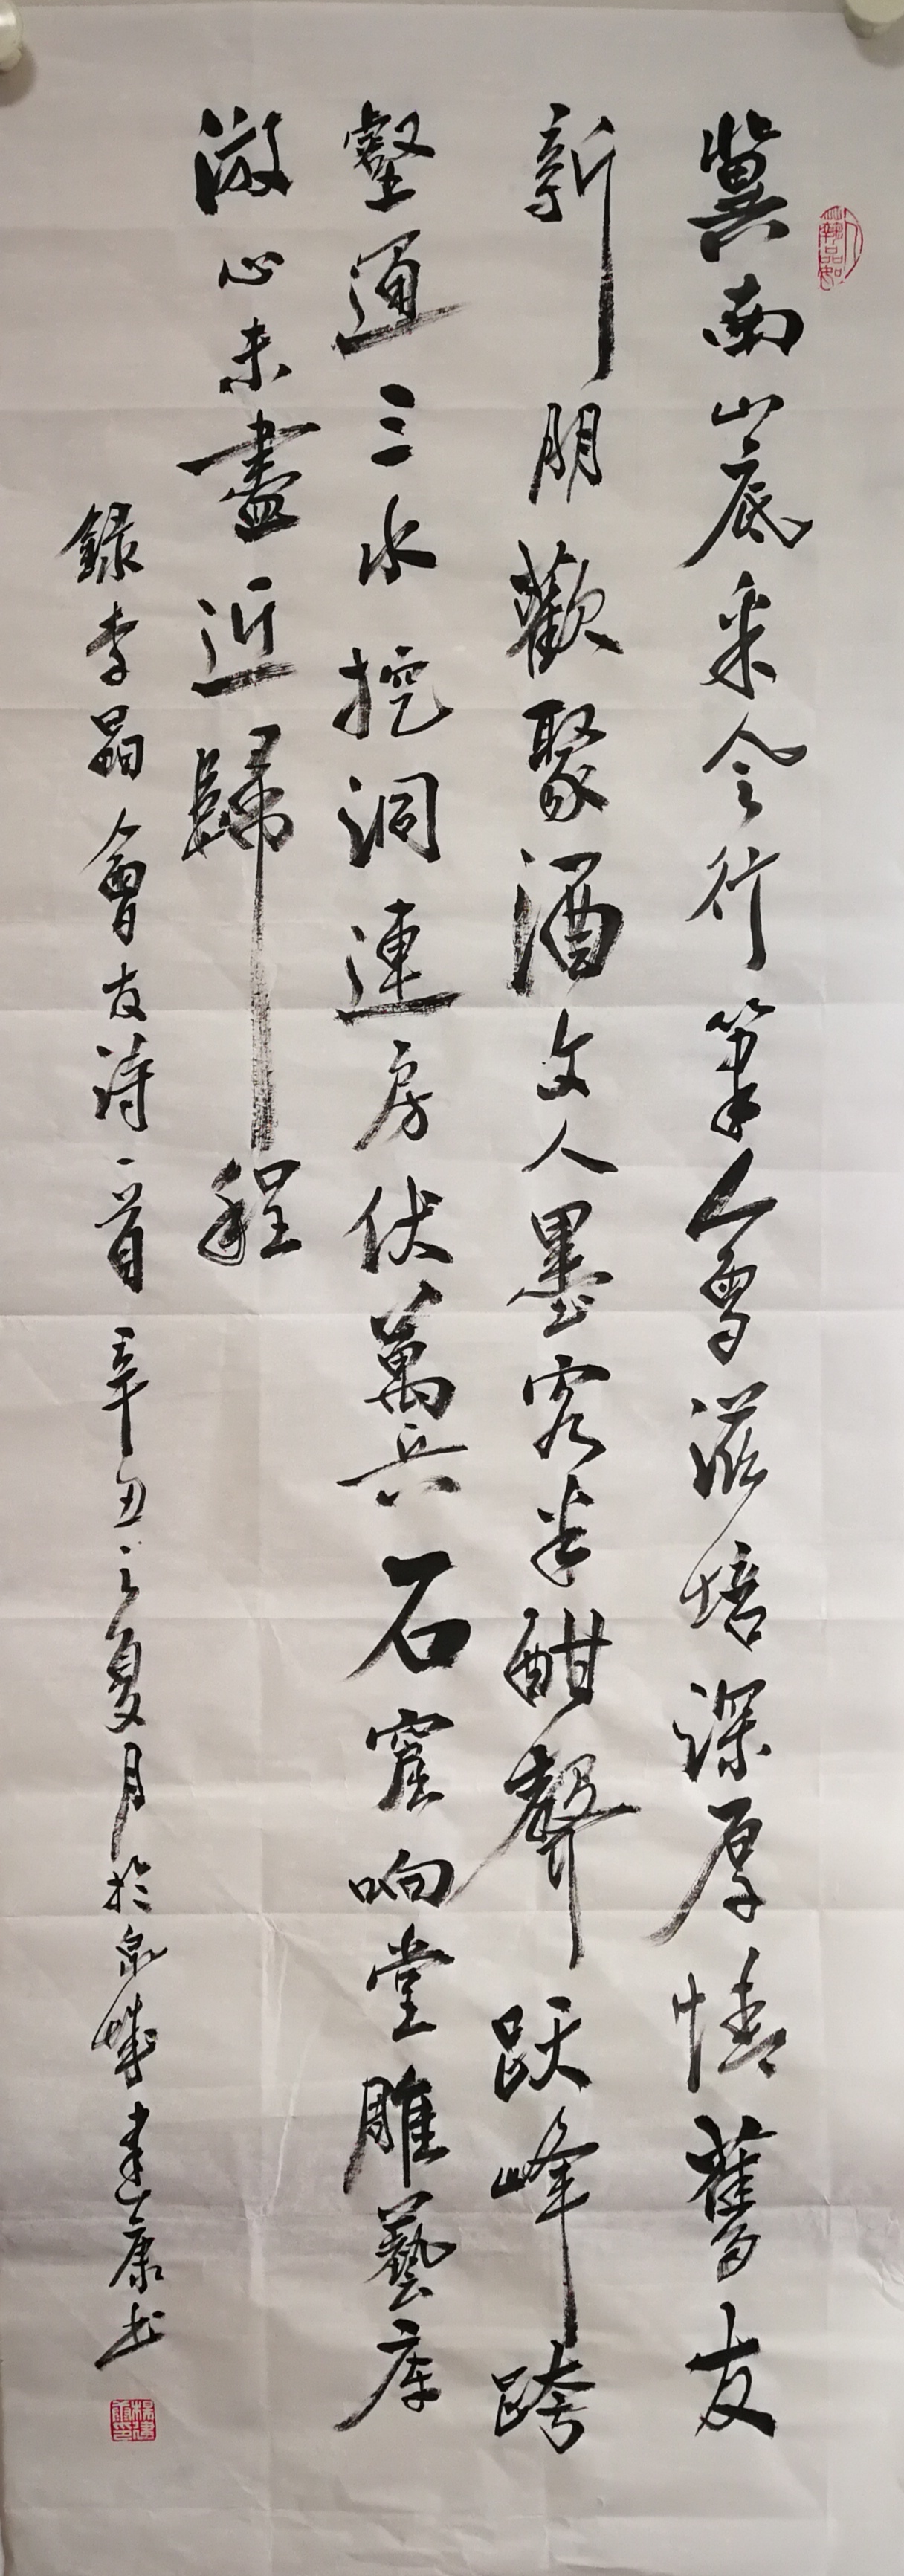 冀南山底采令行筆會滋培深厚情舊友
新朋歡聚酒文人墨客半酣聲跃峰跨
壑通三水挖洞連房伏萬兵石窟响堂雕藝库
激心未盡近歸程
錄李晶會友詩一首辛丑之夏月於泉城建康书